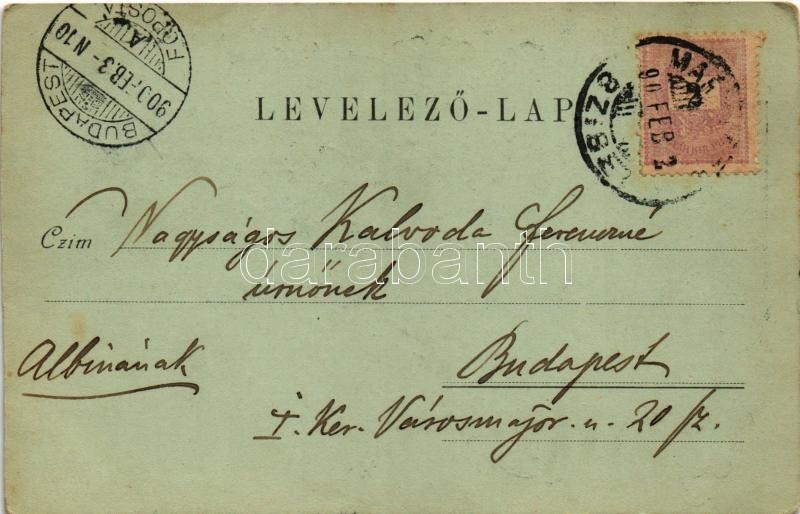 BUDAPEST
900.FEB.3-N10
FŐPOSTA
LEVELEZŐ-LAP
90 FEB 2
Czim Nagyságos Kalvoda Ferencné
úrnőnek
Albinának
Budapest
I. Ker. Városmajor-u. 20 fz.
darabanth